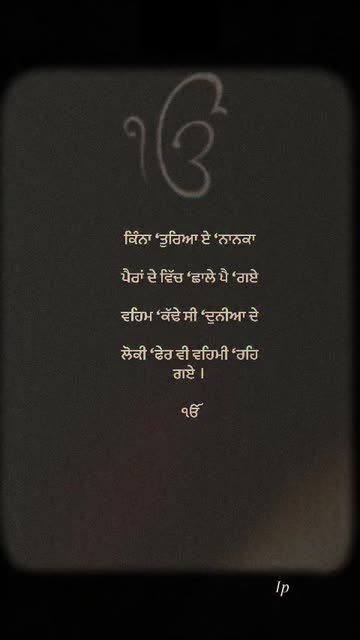 ੴ
ਕਿੰਨਾ ‘ਤੁਰਿਆ ਏ ‘ਨਾਨਕਾ
ਪੈਰਾਂ ਦੇ ਵਿੱਚ ‘ਛਾਲੇ ਪੈ ‘ਗਏ
ਵਹਿਮ ‘ਕੱਢੇ ਸੀ ‘ਦੁਨੀਆ ਦੇ
ਲੋਕੀ ‘ਫੇਰ ਵੀ ਵਹਿਮੀ ‘ਰਹਿ
ਗਏ ।
ੴ
lp